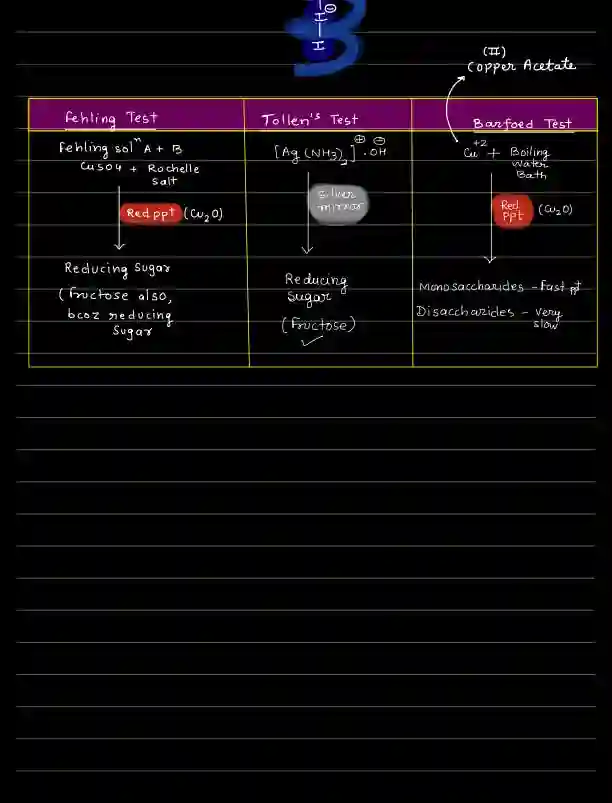 I⊖
I
(II)
Copper Acetate
Fehling Test
Fehling solⁿ A + B
CuSO4 + Rochelle
Salt
Red ppt (Cu₂O)
Reducing Sugar
(Fructose also,
bcoz reducing
Sugar
Tollen's Test
[Ag(NH₃)₂]⊕ . OH⊖
Silver
mirror
Reducing
Sugar
(Fructose)
✓
Barfoed Test
Cu+2 + Boiling
Water
Bath
Red
PPt (Cu₂O)
Monosaccharides - Fast ppt
Disaccharides - very
slow